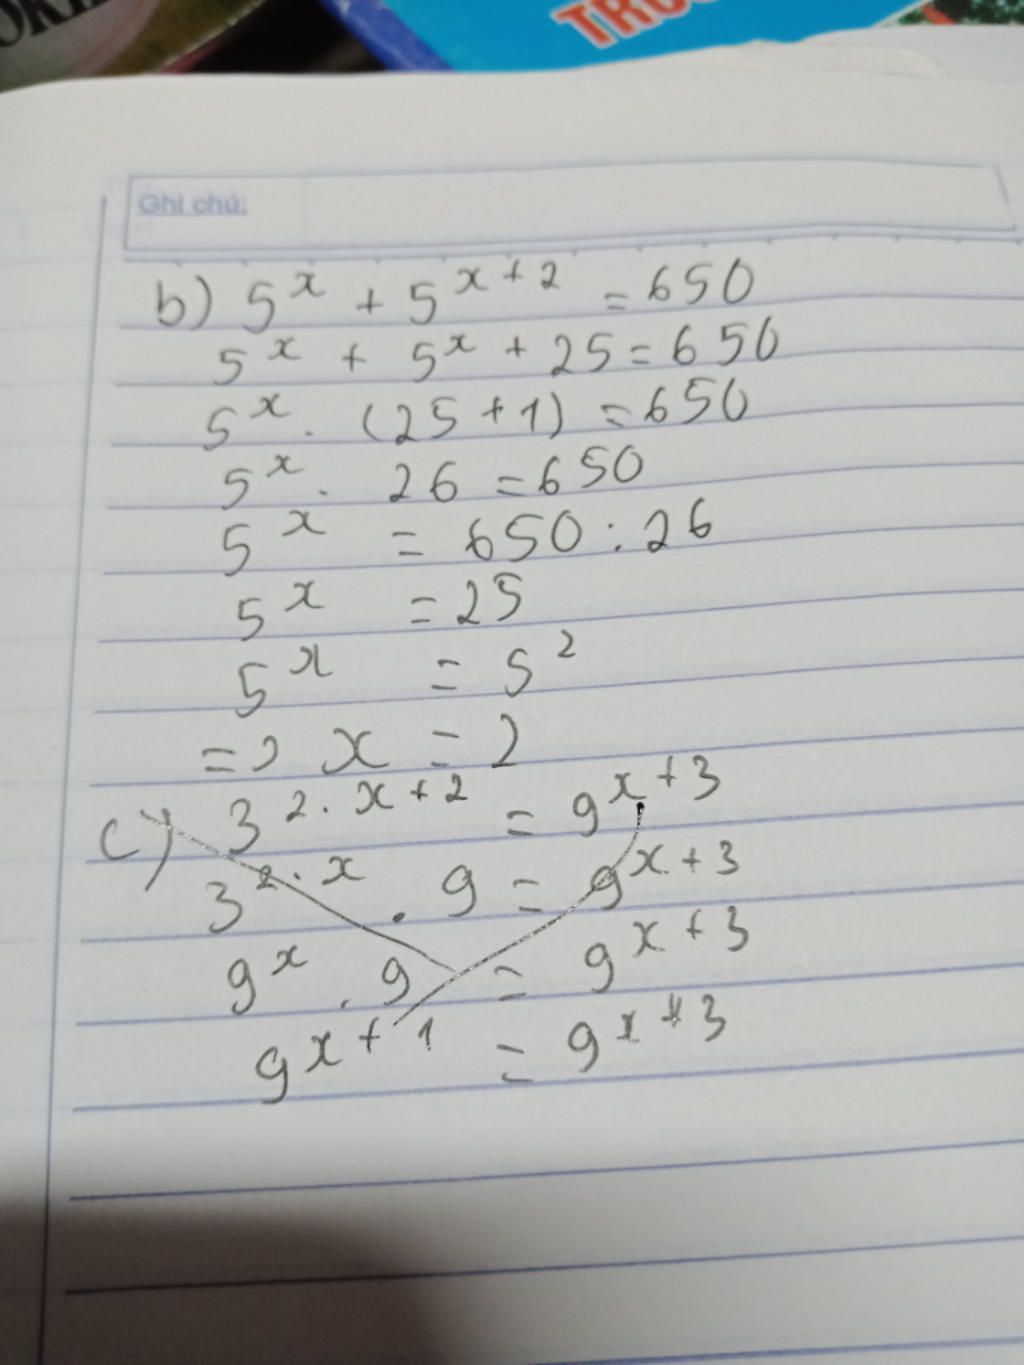 TRU
Ghi chú:
b) 5^x + 5^{x+2} = 650
5^x + 5^x + 25 = 650
5^x . (25 + 1) = 650
5^x . 26 = 650
5^x = 650 : 26
5^x = 25
5^x = 5^2
=> x = 2
c) 3^{2.x+2} = 9^{x+3}
3^{2.x} . 9 = 9^{x+3}
9^x . 9 = 9^{x+3}
9^{x+1} = 9^{x+3}